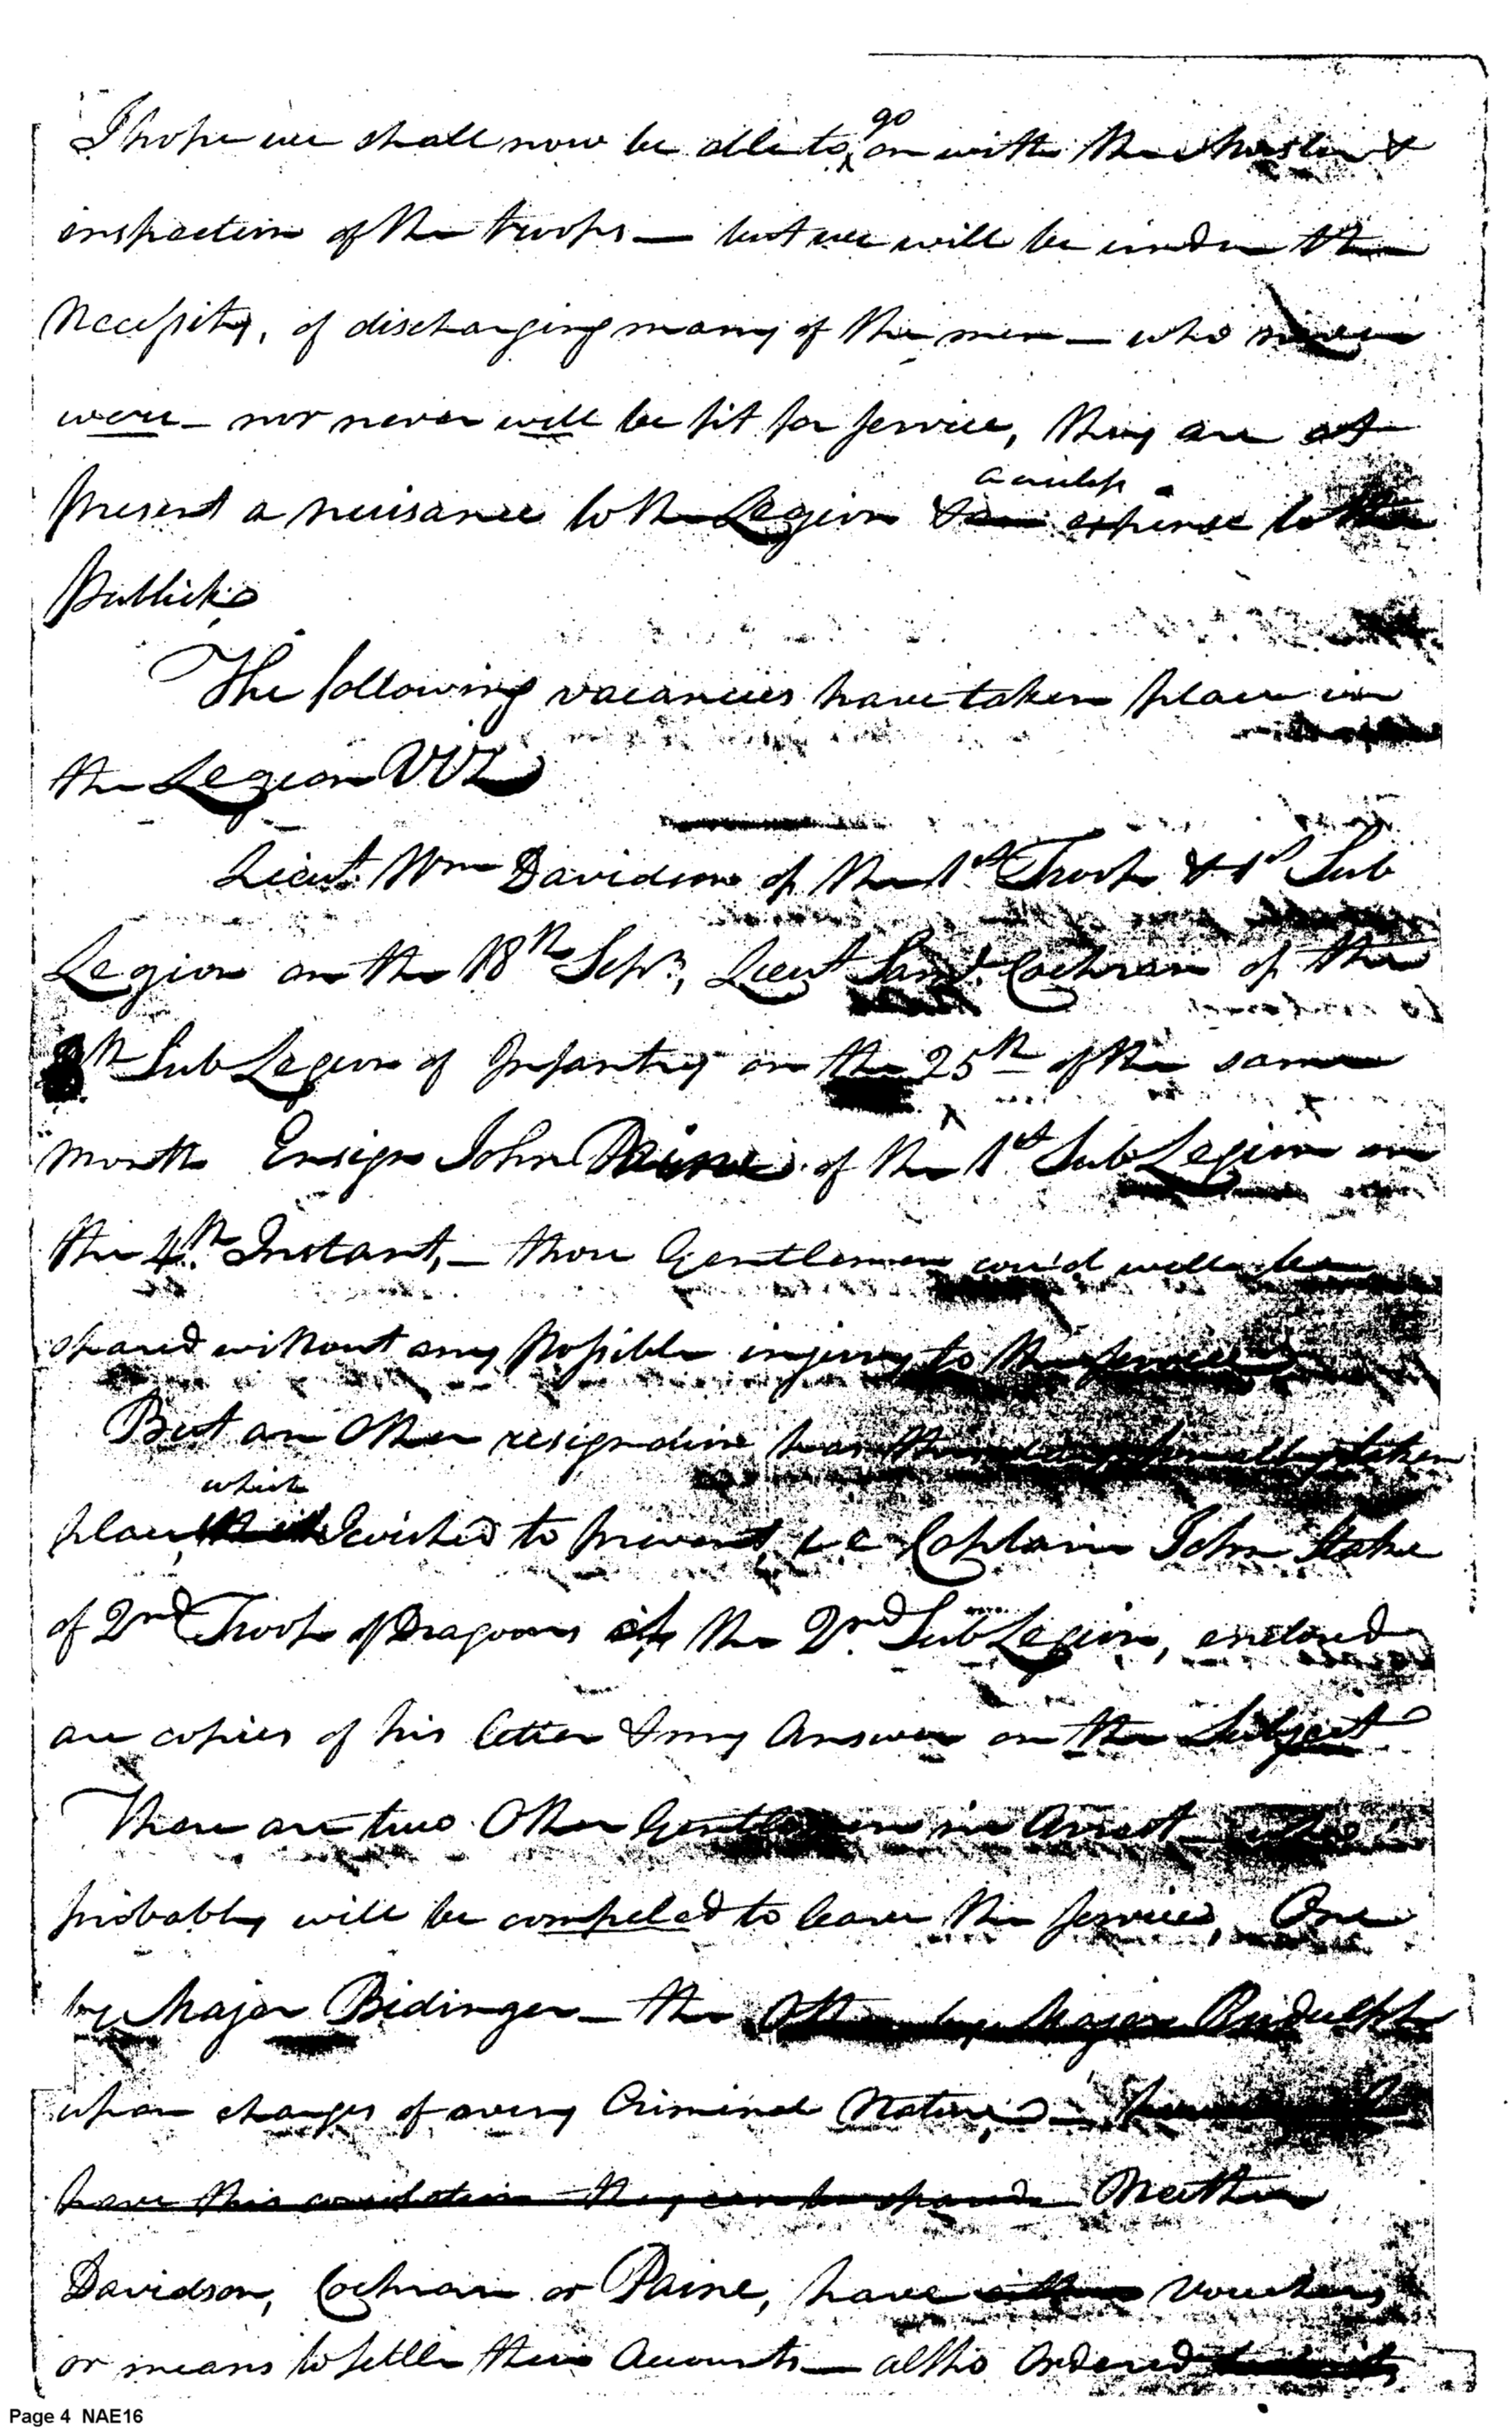 I hope we shall now be able to go on with the Muster &
inspection of the troops — but we will be under the
Necessity, of discharging many of the men — who never
were — nor never will be fit for service, they are at
present a nuisance to the Legion & a useless expense to the
Publick.
The following vacancies have taken place in
the Legion VIZ
Lieut. Wm Davidson of the 1st Troop & 1st Sub
Legion on the 18th Sepr., Lieut Saml. Cochran of the
th Sub Legion of Infantry on the 25th of the same
Month Ensign John Paine of the 1st Sub Legion on
the 4th. Instant, — those Gentlemen cou'd well be
spared without any possible injury to the service
But an Other resignation has this taken
place, which I wished to prevent, i.e. Captain John Stake
of 2nd Troop of Dragoons of the 2nd. Sub Legion, enclosed
are copies of his letter & my Answer on the Subject
There are two Other Gentlemen in Arrest — who
probably will be compeled to leave the service, One
by Major Bedinger — the Other by Major Rudulph
upon charges of a very Criminal Nature, —
have this consolation they can be spared Neither
Davidson, Cochran or Paine, have either Vouchers
or means to settle their Accounts — altho Ordered
Page 4 NAE16